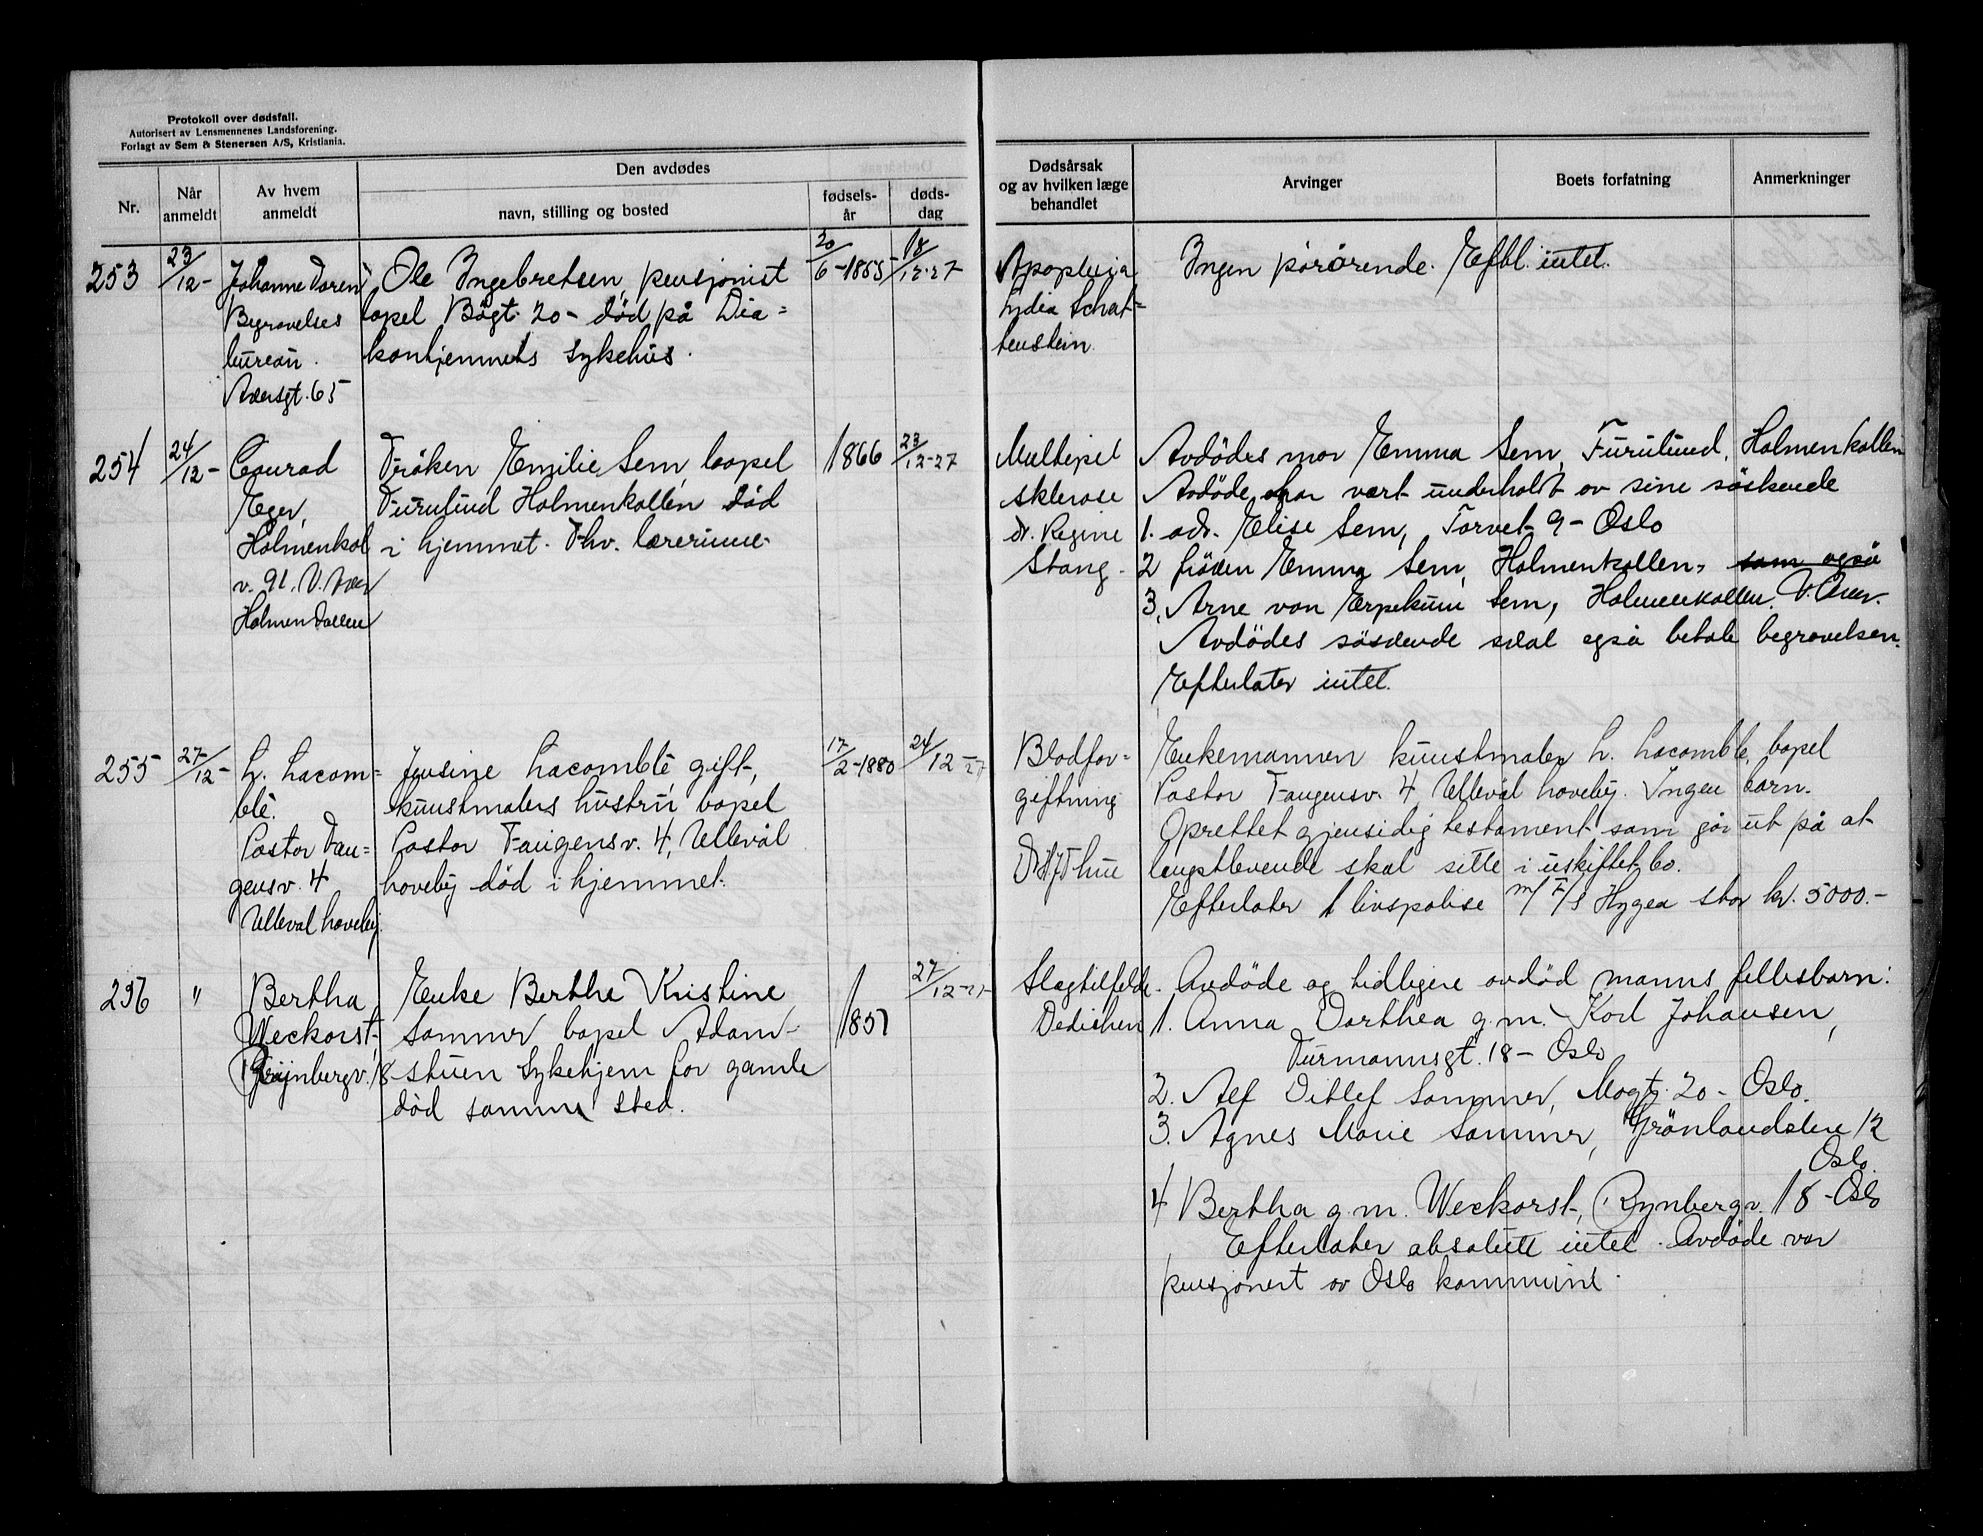 Protokoll over dødsfall.
Autorisert av Lensmennenes Landsforening.
Forlagt av Sem & Stenersen A/S, Kristiania.
Nr.
Når anmeldt
Av hvem anmeldt
Den avdødes
navn, stilling og bosted
fødsels-år
døds-dag
Dødsårsak og av hvilken læge behandlet
Arvinger
Boets forfatning
Anmerkninger
253
23/12-
Johanne
Begravelses
bureau.
Akersgt. 65
Ole Ingebretsen, pensjonist
bopel Bogt. 20 - død på Dia=
konhjemmets sykehus.
20/6-1855
18/12-27
Apoplexia
Lydia Schat=
tenstein
Ingen pårörende. Eftl. intet.
254
24/12-
Conrad
Eger,
Holmenkol
v. 91. V. Aker
Holmenkollen
Fröken Emilie Sem, bopel
Furulund Holmenkollen död
i hjemmet. Fhv. lærerinne.
1866
23/12-27
Multipel
sklerose
dr. Regine
Stang.
Avdödes mor Emma Sem, Furulund, Holmenkollen
Avdöde har vært underholdt av sine söskende
1. adr. Elise Sem, Torvet 9 - Oslo
2 fröken Emma Sem, Holmenkollen, som også
3. Arne von Erpekum Sem, Holmenkollen. V. Aker.
Avdödes söskende skal også betale begravelsen.
Efterlater intet.
255
27/12-
L. Lacom=
blé.
Pastor Fan=
gensv. 4
Ullevål haveby.
Jensine Lacomblé, gift,
kunstmalers hustru, bopel
Pastor Fangensv. 4, Ullevål
haveby död i hjemmet.
17/2-1880
24/12-27
Blodfor-
giftning
Thue
Enkemannen kunstmaler L. Lacomblé, bopel
Pastor Fangensv. 4 Ullevål haveby. Ingen barn.
Oprettet gjensidig testament som går ut på at
lengstlevende skal sitte i uskiftet bo.
Efterlater 1 livspolise m/ F/S Hygea stor kr. 5000.-
256
"
Bertha
Weckorst,
Rynbergv. 18
Enke Berthe Kristine
Sommer bopel Adam-
stuen Sykehjem for gamle
död samme sted.
1851
27/12-27
Slagtilfelde.
Dedichen
Avdöde og tidligere avdöd manns fellesbarn:
1. Anna Dorthea g.m. Karl Johansen,
Furmannsgt. 18 - Oslo
2. Alf Ditlef Sommer, Mogt. 20 - Oslo.
3. Agnes Marie Sommer, Grönlandsleir 12
Oslo.
4 Bertha g.m. Weckorst, Rynbergv. 18 - Oslo
Efterlater absolutt intet. Avdöde var
pensjonert av Oslo kommune.